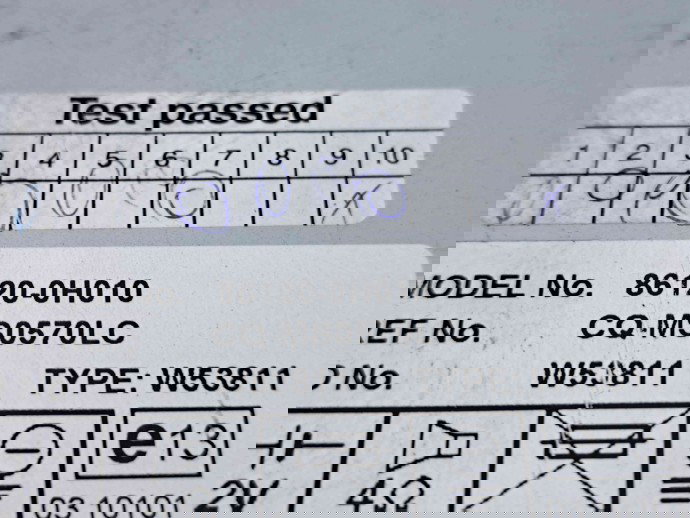 Test passed
1 2 3 4 5 6 7 8 9 10
MODEL No. 86120-0H010
REF No. CQ-MS0570LC
TYPE: W53811 ID No. W53811
e13
03 10101 2V 4Ω